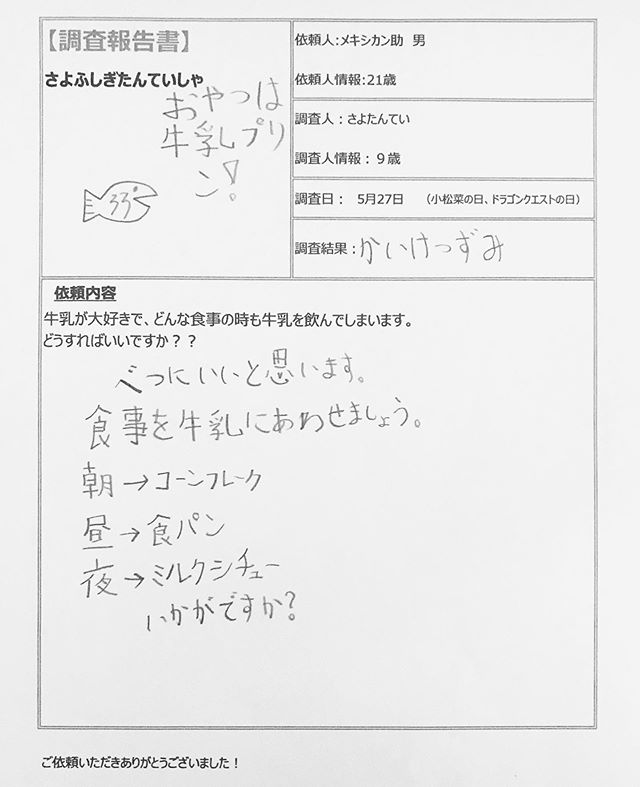 【調査報告書】
さよふしぎたんていしゃ
おやつは
牛乳プリ
ン!
33
依頼人:メキシカン助 男
依頼人情報:21歳
調査人:さよたんてい
調査人情報:9歳
調査日: 5月27日 (小松菜の日、ドラゴンクエストの日)
調査結果:かいけつずみ
依頼内容
牛乳が大好きで、どんな食事の時も牛乳を飲んでしまいます。
どうすればいいですか??
べつにいいと思います。
食事を牛乳にあわせましょう。
朝→コーンフレーク
昼→食パン
夜→ミルクシチュー
いかがですか?
ご依頼いただきありがとうございました!